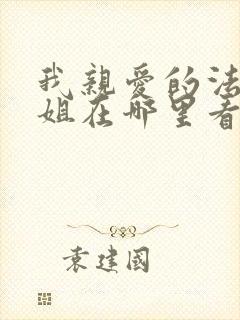 我親愛的法
姐在哪里看
袁建國